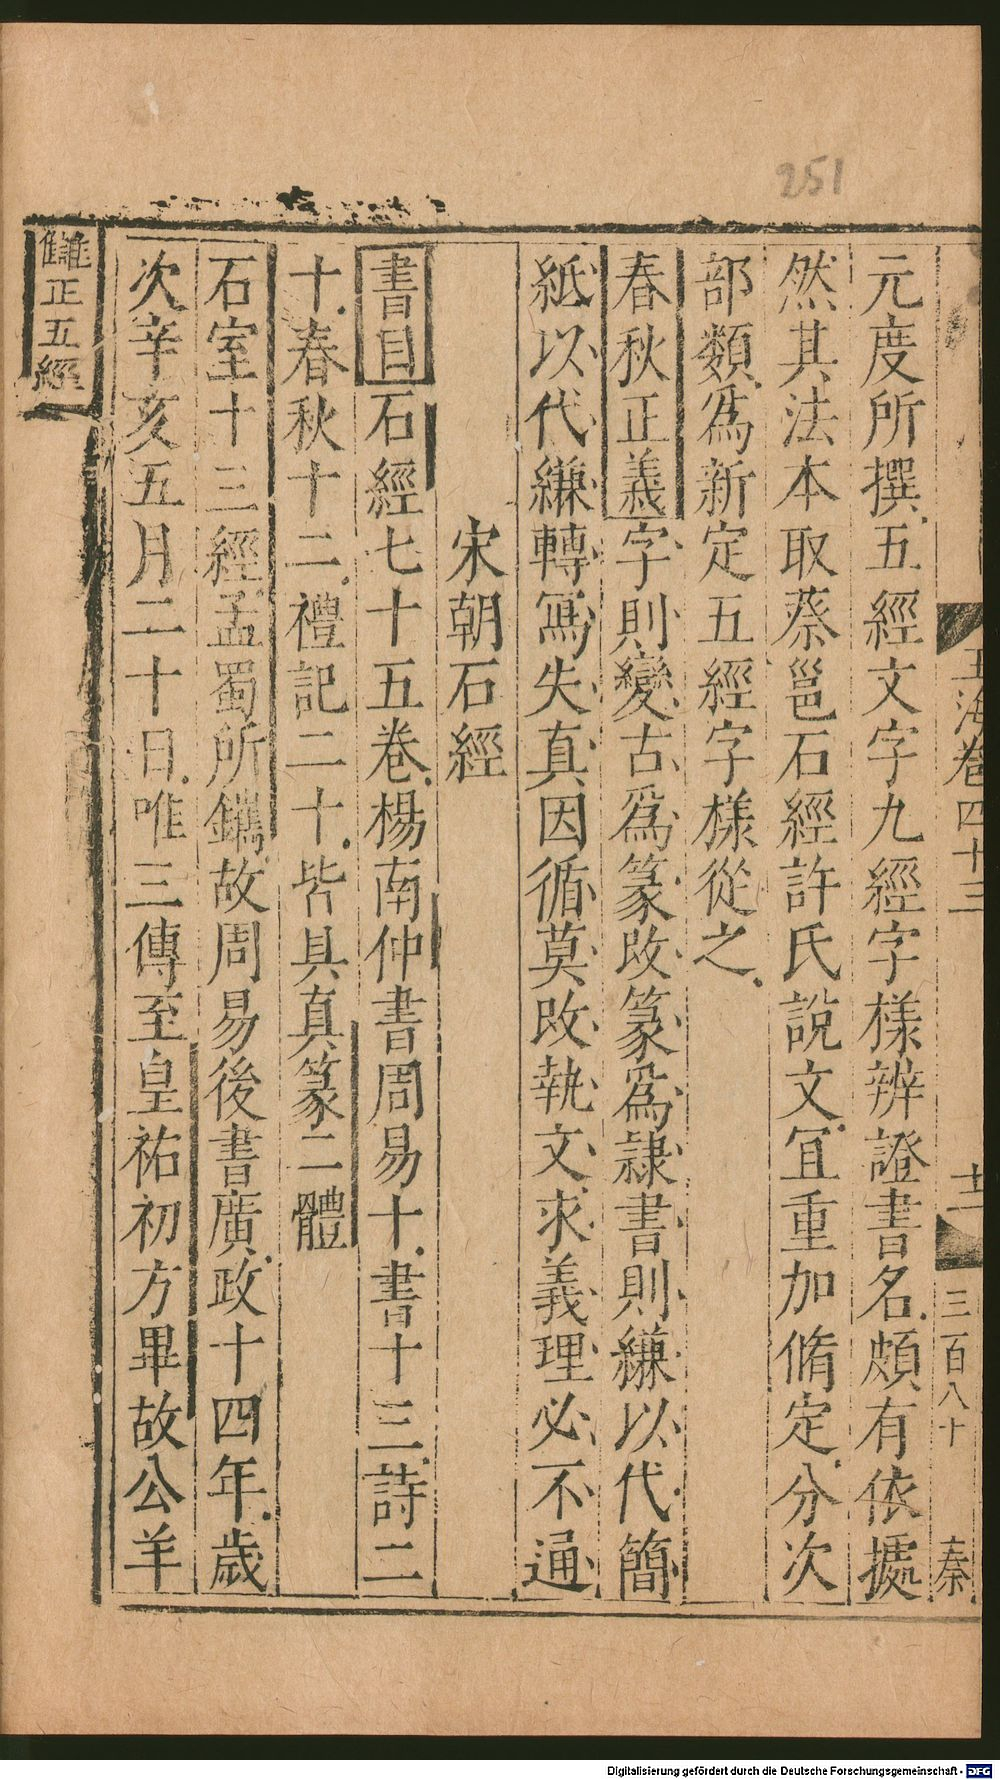 251
玉海卷四十三
十二
三百八十
秦
元度所撰五經文字九經字樣辨證書名頗有依據
然其法本取蔡邕石經許氏說文宜重加脩定分次
部類爲新定五經字樣從之
春秋正義字則變古爲篆改篆爲隷書則縑以代簡
紙以代縑轉寫失真因循莫改執文求義理必不通
宋朝石經
書目石經七十五卷楊南仲書周易十書十三詩二
十春秋十二禮記二十皆具真篆二體
石室十三經孟蜀所鐫故周易後書廣政十四年歲
次辛亥五月二十日唯三傳至皇祐初方畢故公羊
讎正五經
Digitalisierung gefördert durch die Deutsche Forschungsgemeinschaft - DFG